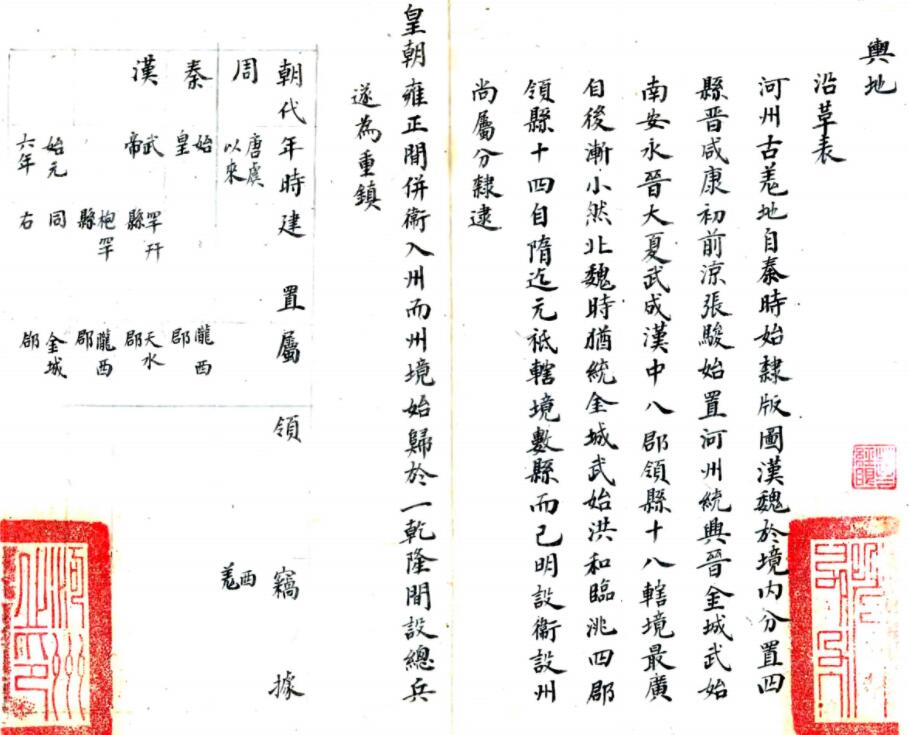 輿地
沿草表
河州古羌地自秦時始隸版圖漢魏於境內分置四
縣晋咸康初前涼張駿始置河州統興晉金城武始
南安永晉大夏武成漢中八郡領縣十八轄境最廣
自後漸小然北魏時猶統金城武始洪和臨洮四郡
領縣十四自隋迄元祇轄境數縣而已明設衞設州
尚屬分隸逮
皇朝雍正間併衞入州而州境始歸於一乾隆間設總兵
遂為重鎮
朝代年時建置屬領竊據
周 唐虞以來 西羌
秦 始皇 隴西郡
漢 武帝 罕幵縣 天水郡
枹罕縣 隴西郡
始元六年 同右 金城郡
河州之印